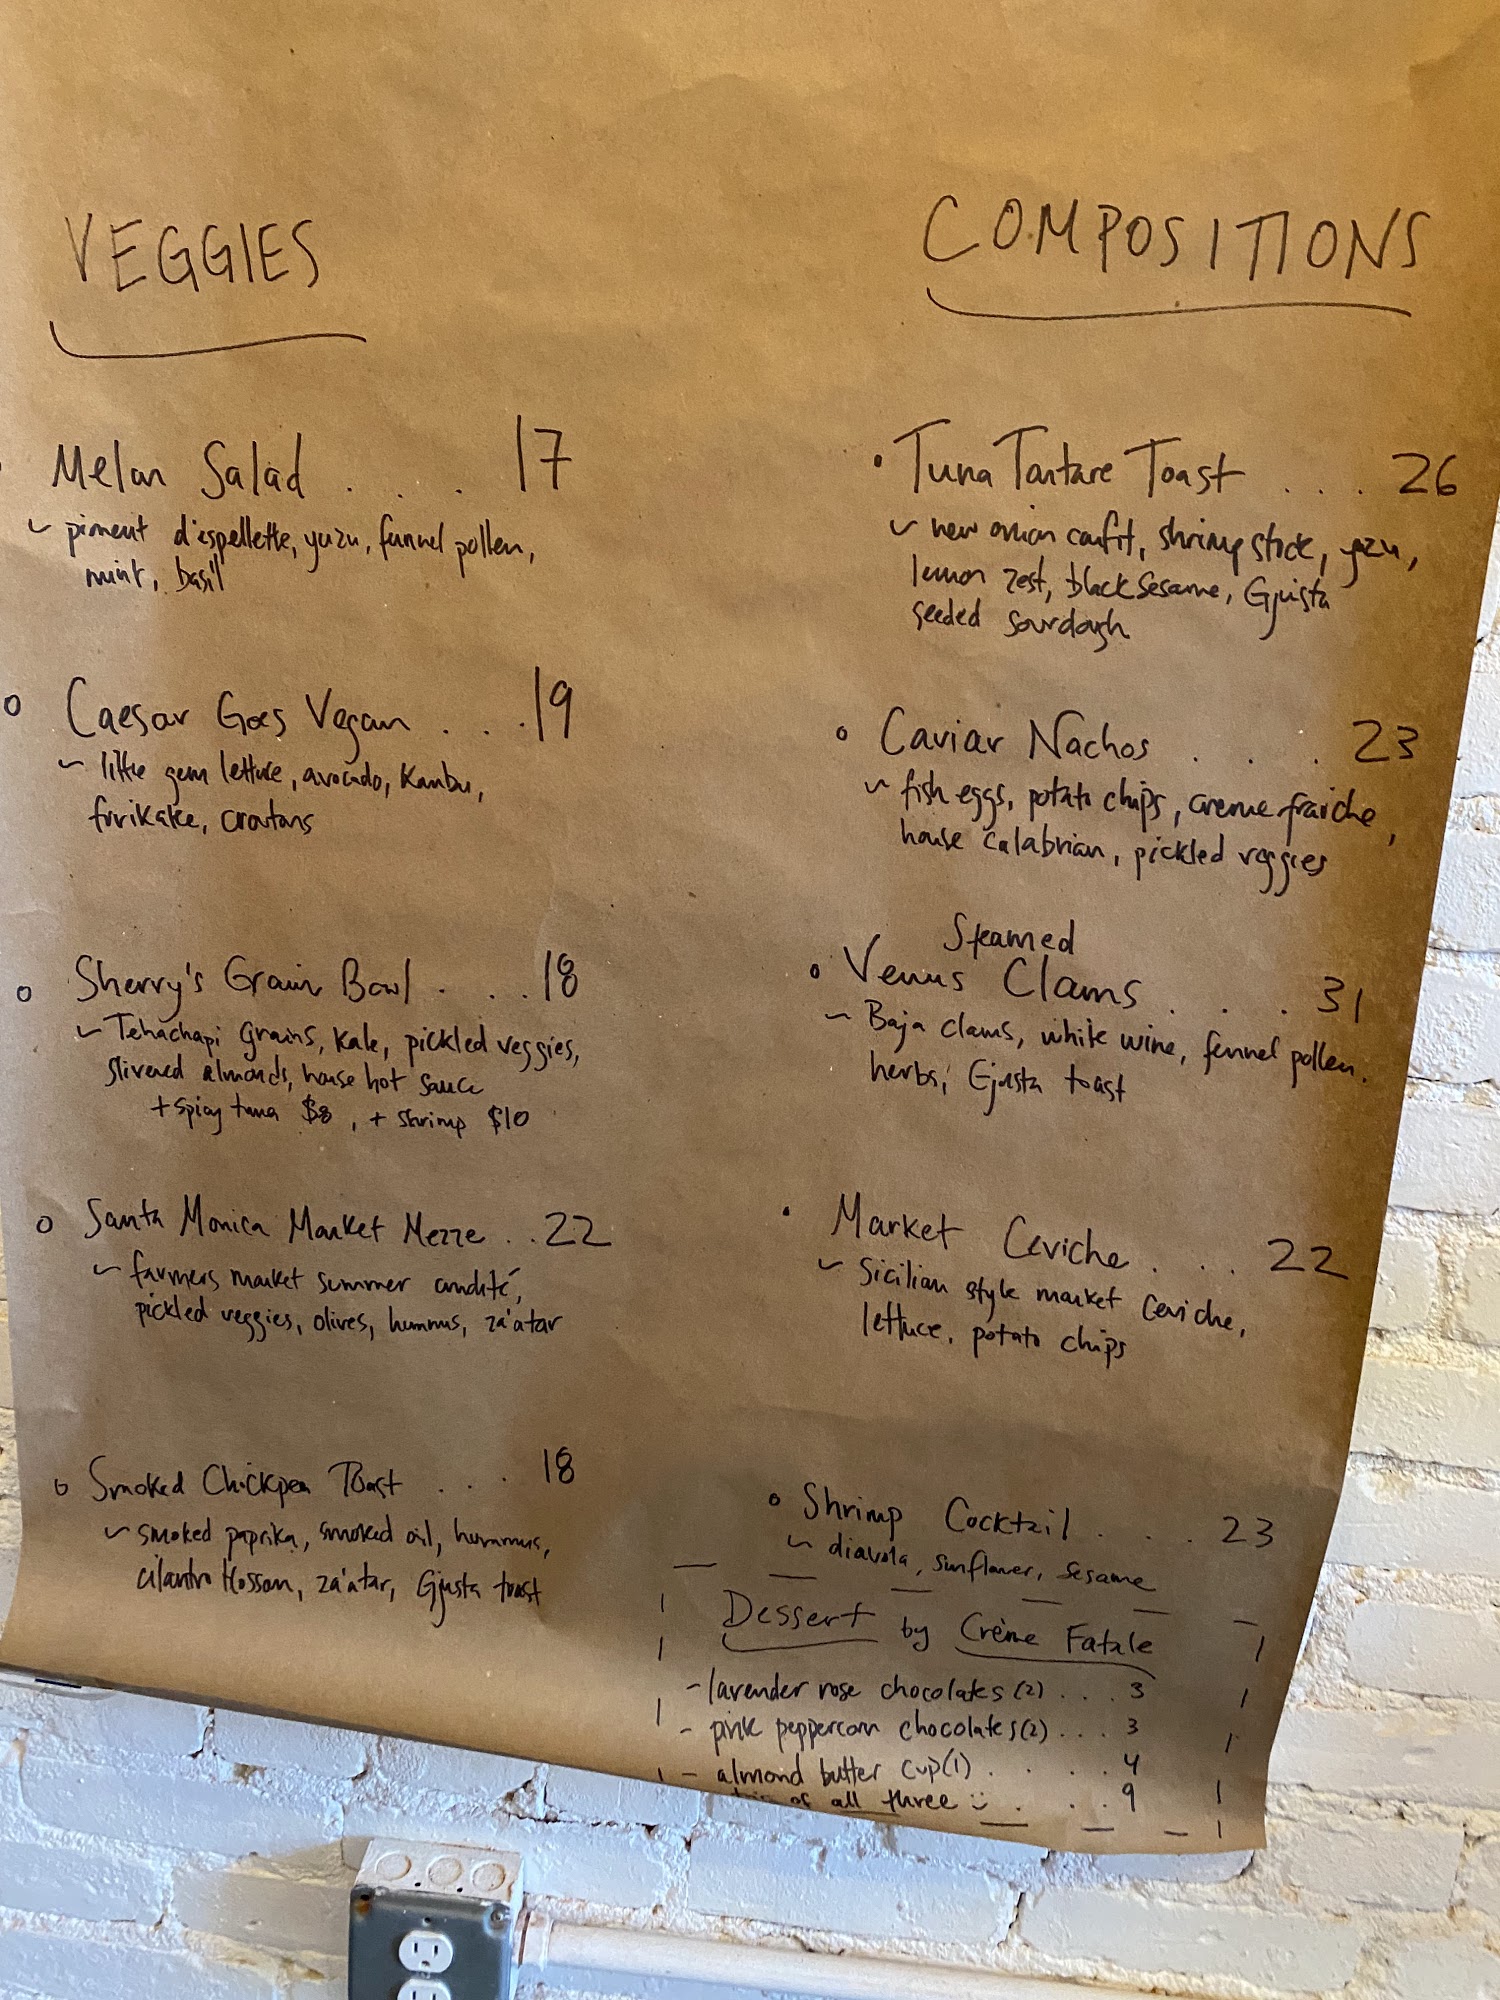 VEGGIES
Melon Salad . . . 17
~ piment d'espellette, yuzu, funnel pollen,
mint, basil
o Caesar Goes Vegan . . . 19
~ little gem lettuce, avocado, Kombu,
furikake, croutons
o Sherry's Grain Bowl . . . 18
~ Tehachapi grains, kale, pickled veggies,
slivered almonds, house hot sauce
+ spicy tuna $8, + shrimp $10
o Santa Monica Market Mezze . . 22
~ farmers market summer crudité,
pickled veggies, olives, hummus, za'atar
o Smoked Chickpea Toast . . . 18
~ smoked paprika, smoked oil, hummus,
cilantro blossom, za'atar, Gjusta toast
COMPOSITIONS
• Tuna Tartare Toast . . . 26
~ new onion confit, shrimp stock, yuzu,
lemon zest, black sesame, Gjusta
seeded sourdough
• Caviar Nachos . . . 23
~ fish eggs, potato chips, creme fraiche,
house calabrian, pickled veggies
Steamed
• Venus Clams . . . 31
~ Baja clams, white wine, fennel pollen.
herbs, Gjusta toast
• Market Ceviche . . . 22
~ Sicilian style market ceviche,
lettuce, potato chips
• Shrimp Cocktail . . . 23
~ diavola, sunflower, sesame
Dessert by Crème Fatale
- lavender rose chocolates (2) . . . 3
- pink peppercorn chocolates (2) . . . 3
- almond butter cup (1) . . . . 4
of all three :) . . . 9